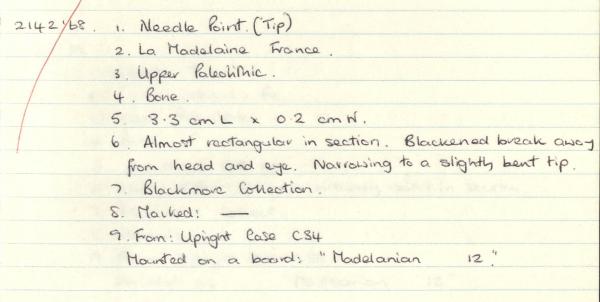 2142'68. 1. Needle Point. (Tip)
2. La Madelaine France.
3. Upper Paleolithic.
4. Bone.
5. 3.3 cm L x 0.2 cm W.
6. Almost rectangular in section. Blackened break away
from head and eye. Narrowing to a slightly bent tip.
7. Blackmore Collection.
8. Marked: —
9. From: Upright Case C34
Mounted on a board: "Madelanian 12."